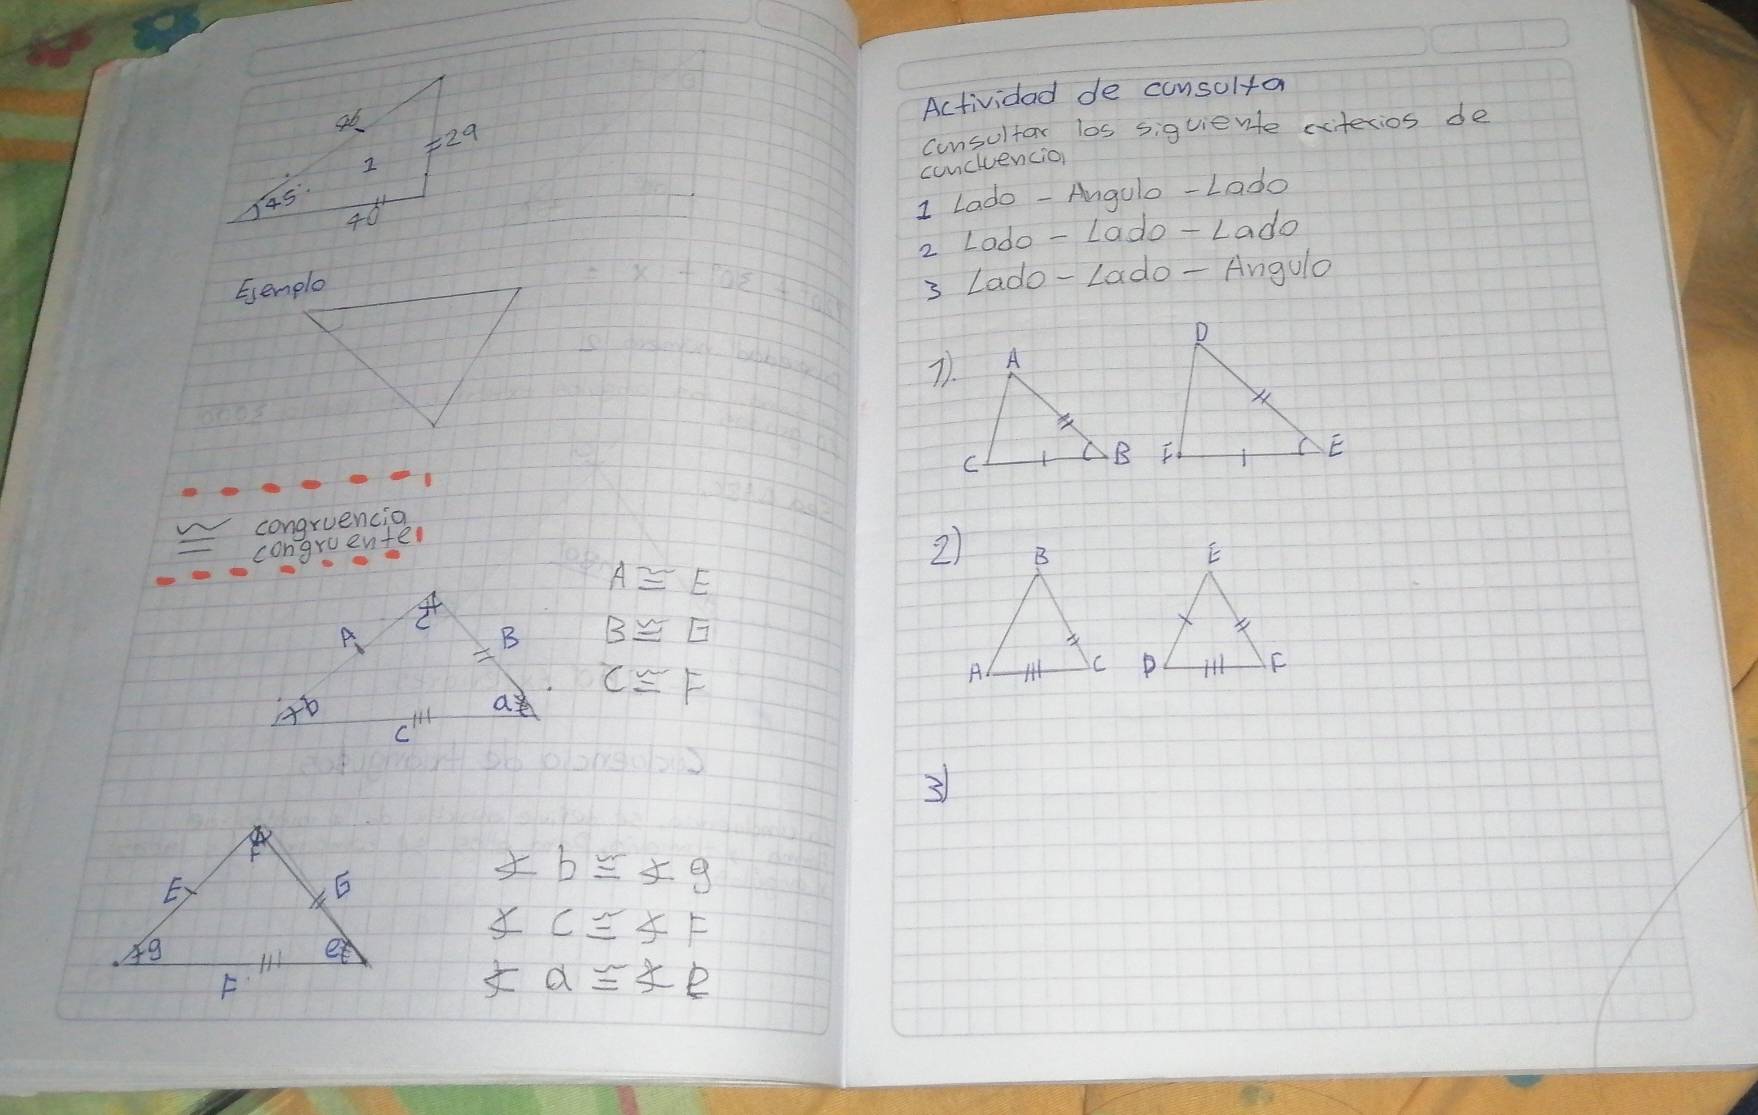 46
=29
1
45°
40
Ejemplo
≅ congruencia
congruente
A ≅ E
B ≅ G
C ≅ F
A
c
B
b
a
C
F
E
G
g
e
F
∡ b ≅ ∡ g
∡ c ≅ ∡ F
∡ a ≅ ∡ e
Actividad de consulta
consultar los siguiente criterios de
concluencia
1 Lado - Angulo - Lado
2 Lado - Lado - Lado
3 Lado - Lado - Angulo
1).
A
D
C
B
F
E
2)
B
E
A
C
D
F
3)